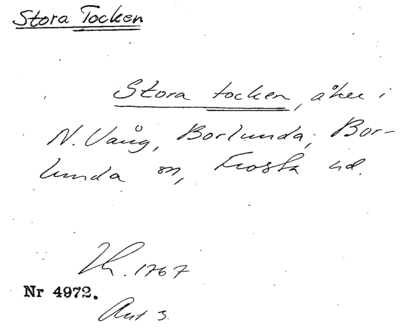 Stora Tocken
Stora tocken, åker i
N. Vång, Borlunda, Bor-
lunda sn, Frosta hd.
1767
Nr 4972.
Art 3.